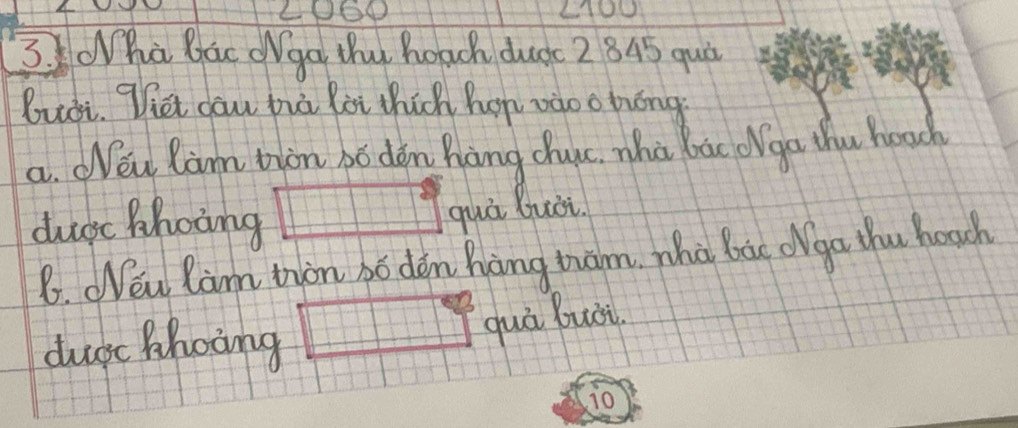 2060
2100
3. Nhà bác Nga thu hoạch được 2 845 quả
bưởi. Viết câu trả lời thích hợp vào ô trống:
a. Nếu làm tròn số đến hàng chục, nhà bác Nga thu hoạch
được khoảng quả bưởi.
b. Nếu làm tròn số đến hàng trăm, nhà bác Nga thu hoạch
được khoảng quả bưởi.
10